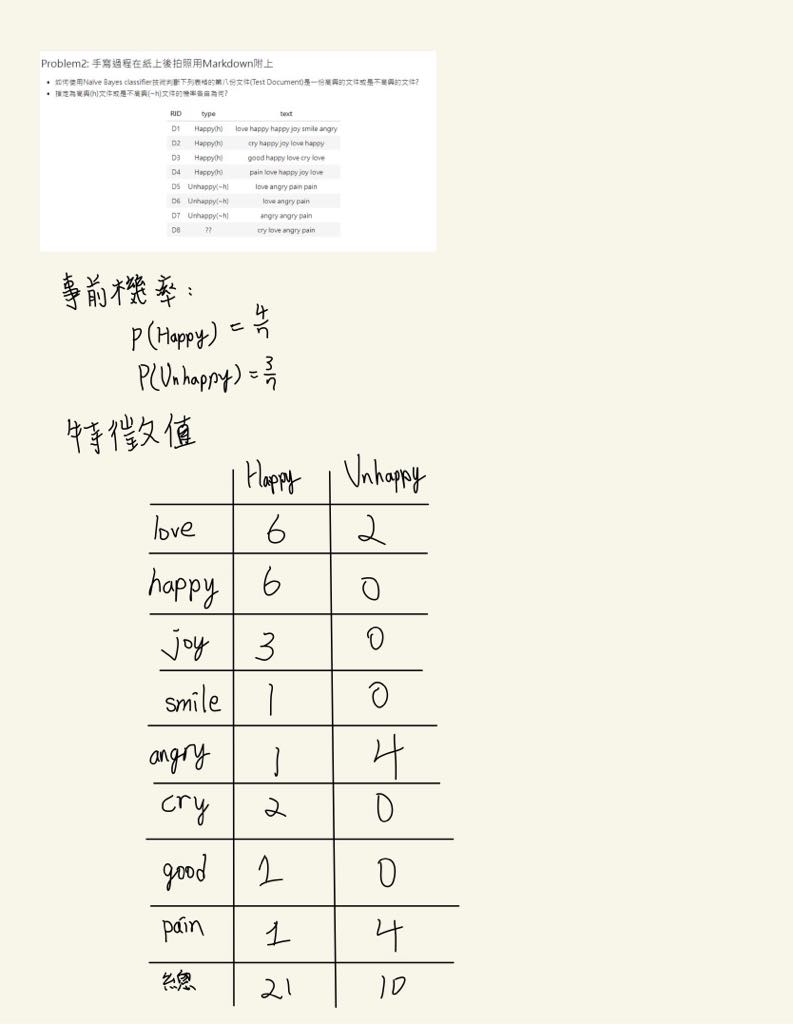 Problem2: 手寫過程在紙上後拍照用Markdown附上
如何使用Naïve Bayes classifier技術判斷下列表格的第八份文件(Test Document)是一份高興的文件或是不高興的文件?
指定為高興(h)文件或是不高興(~h)文件的機率各自為何?
RID type text
D1 Happy(h) love happy happy joy smile angry
D2 Happy(h) cry happy joy love happy
D3 Happy(h) good happy love cry love
D4 Happy(h) pain love happy joy love
D5 Unhappy(~h) love angry pain pain
D6 Unhappy(~h) love angry pain
D7 Unhappy(~h) angry angry pain
D8 ?? cry love angry pain
事前機率:
P(Happy) = 4/7
P(Unhappy) = 3/7
特徵值
Happy Unhappy
love 6 2
happy 6 0
joy 3 0
smile 1 0
angry 1 4
cry 2 0
good 1 0
pain 1 4
總 21 10